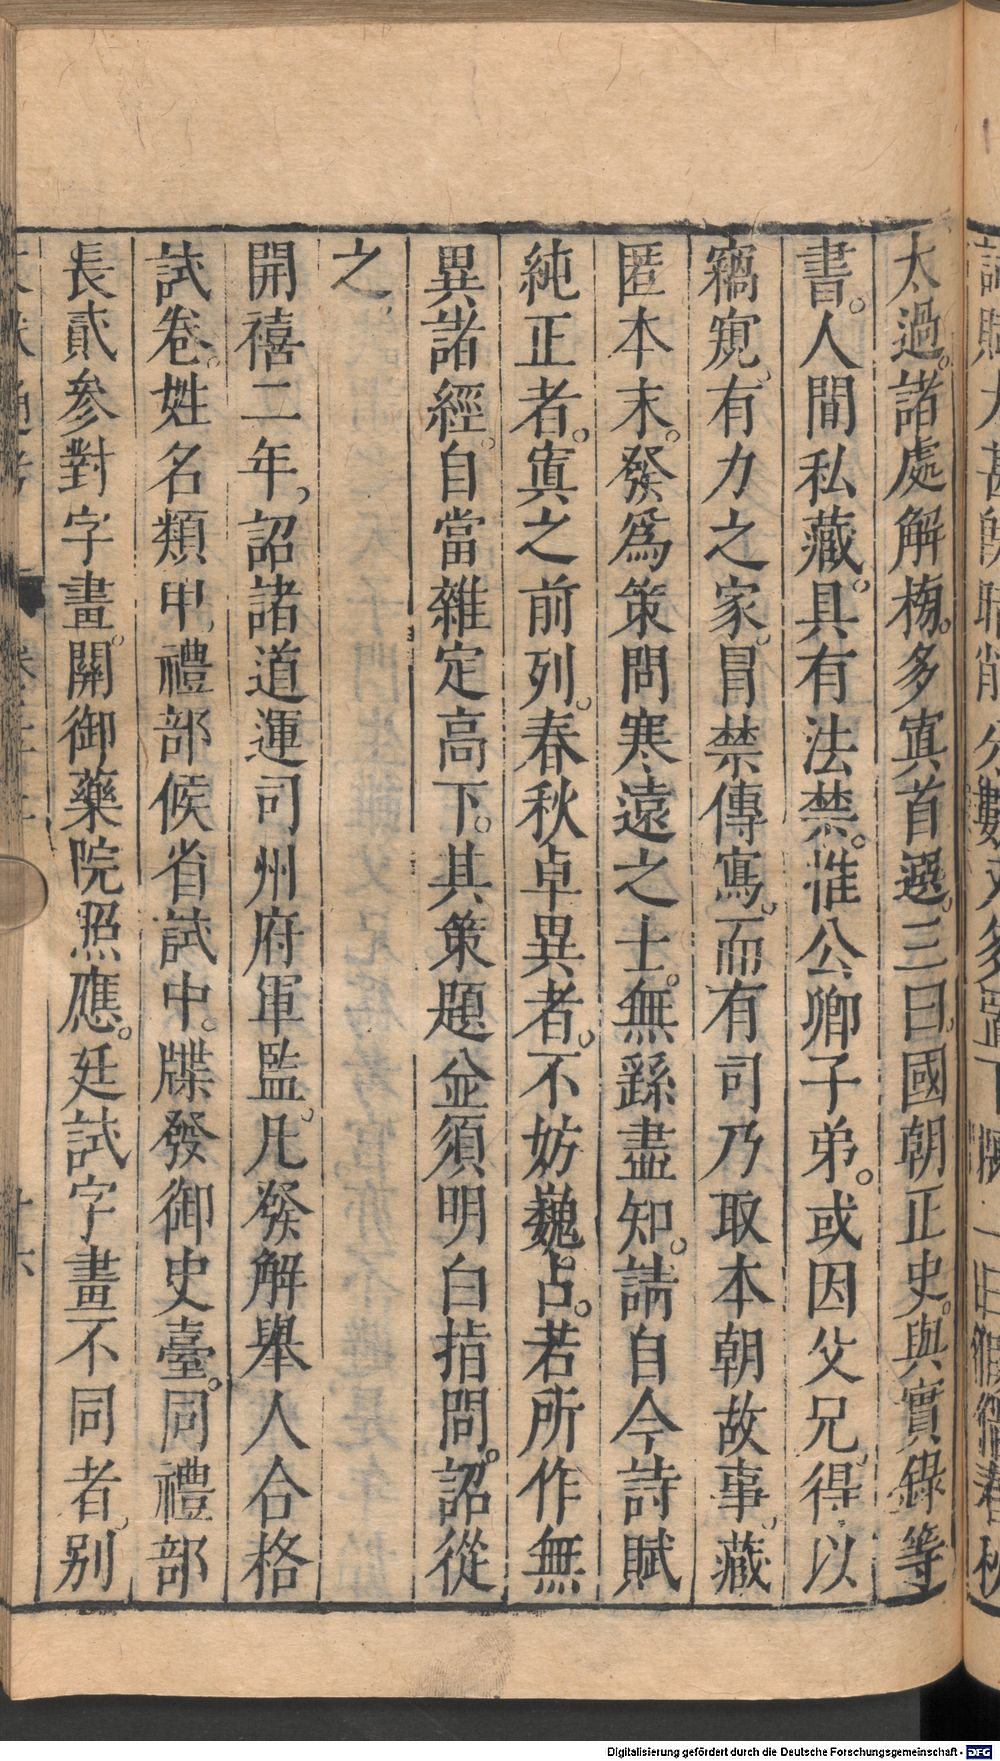 太過。諸處解榜。多寘首選。三曰。國朝正史。與實錄等
書。人間私藏。具有法禁。惟公卿子弟。或因父兄。得以
竊窺。有力之家。冒禁傳寫。而有司乃取本朝故事。藏
匿本末。發爲策問。寒遠之士。無繇盡知。請自今詩賦
純正者。寘之前列。春秋卓異者。不妨巍占。若所作無
異諸經。自當雜定高下。其策題並須明白指問。詔從
之。
開禧二年。詔諸道運司州府軍監。凡發解舉人合格
試卷。姓名類申禮部候省試中。牒發御史臺。同禮部
長貳參對字畫。關御藥院照應。廷試字畫不同者。別
Digitalisierung gefördert durch die Deutsche Forschungsgemeinschaft - DFG